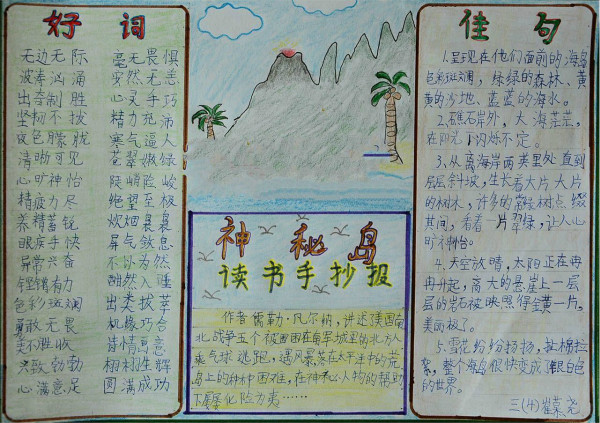 好词
无边无际 毫无畏惧
波奉汹涌 突然无恙
出奇制胜 心灵手巧
坚韧不拔 精力充沛
夜色朦胧 寒气逼人
清晰可见 苍翠嫩绿
心旷神怡 陡峭险峻
精疲力尽 绝望至极
养精蓄锐 炊烟袅袅
眼疾手快 屏气敛息
异常兴奋 不以为然
铿锵有力 黯然入睡
色彩斑斓 出类拔萃
勇敢无畏 机缘巧合
美不胜收 诗情画意
兴致勃勃 栩栩生辉
心满意足 圆满成功
神秘岛
读书手抄报
作者儒勒·凡尔纳,讲述美国南
北战争五个被困在南军城里的北方人
乘气球逃跑,遇风暴落在太平洋中的荒
岛上的种种困难,在神秘人物的帮助
下屡屡化险为夷……
佳句
1.呈现在他们面前的海岛
色彩斑斓,绿绿的森林、黄
黄的沙地、蓝蓝的海水。
2.礁石岸外,大海茫茫,
在阳光下闪烁不定。
3.从离海岸两英里处直到
层层斜坡,生长着大片大片
的树木,许多的树点缀
其间,看着一片翠绿,让人心
旷神怡。
4.天空放晴,太阳正在冉
冉升起,高大的悬崖上一层
层的岩石被映照得金黄一片,
美丽极了。
5.雪花纷纷扬扬,扯棉拉
絮,整个海岛很快变成了银白色
的世界。
三(4)崔尧